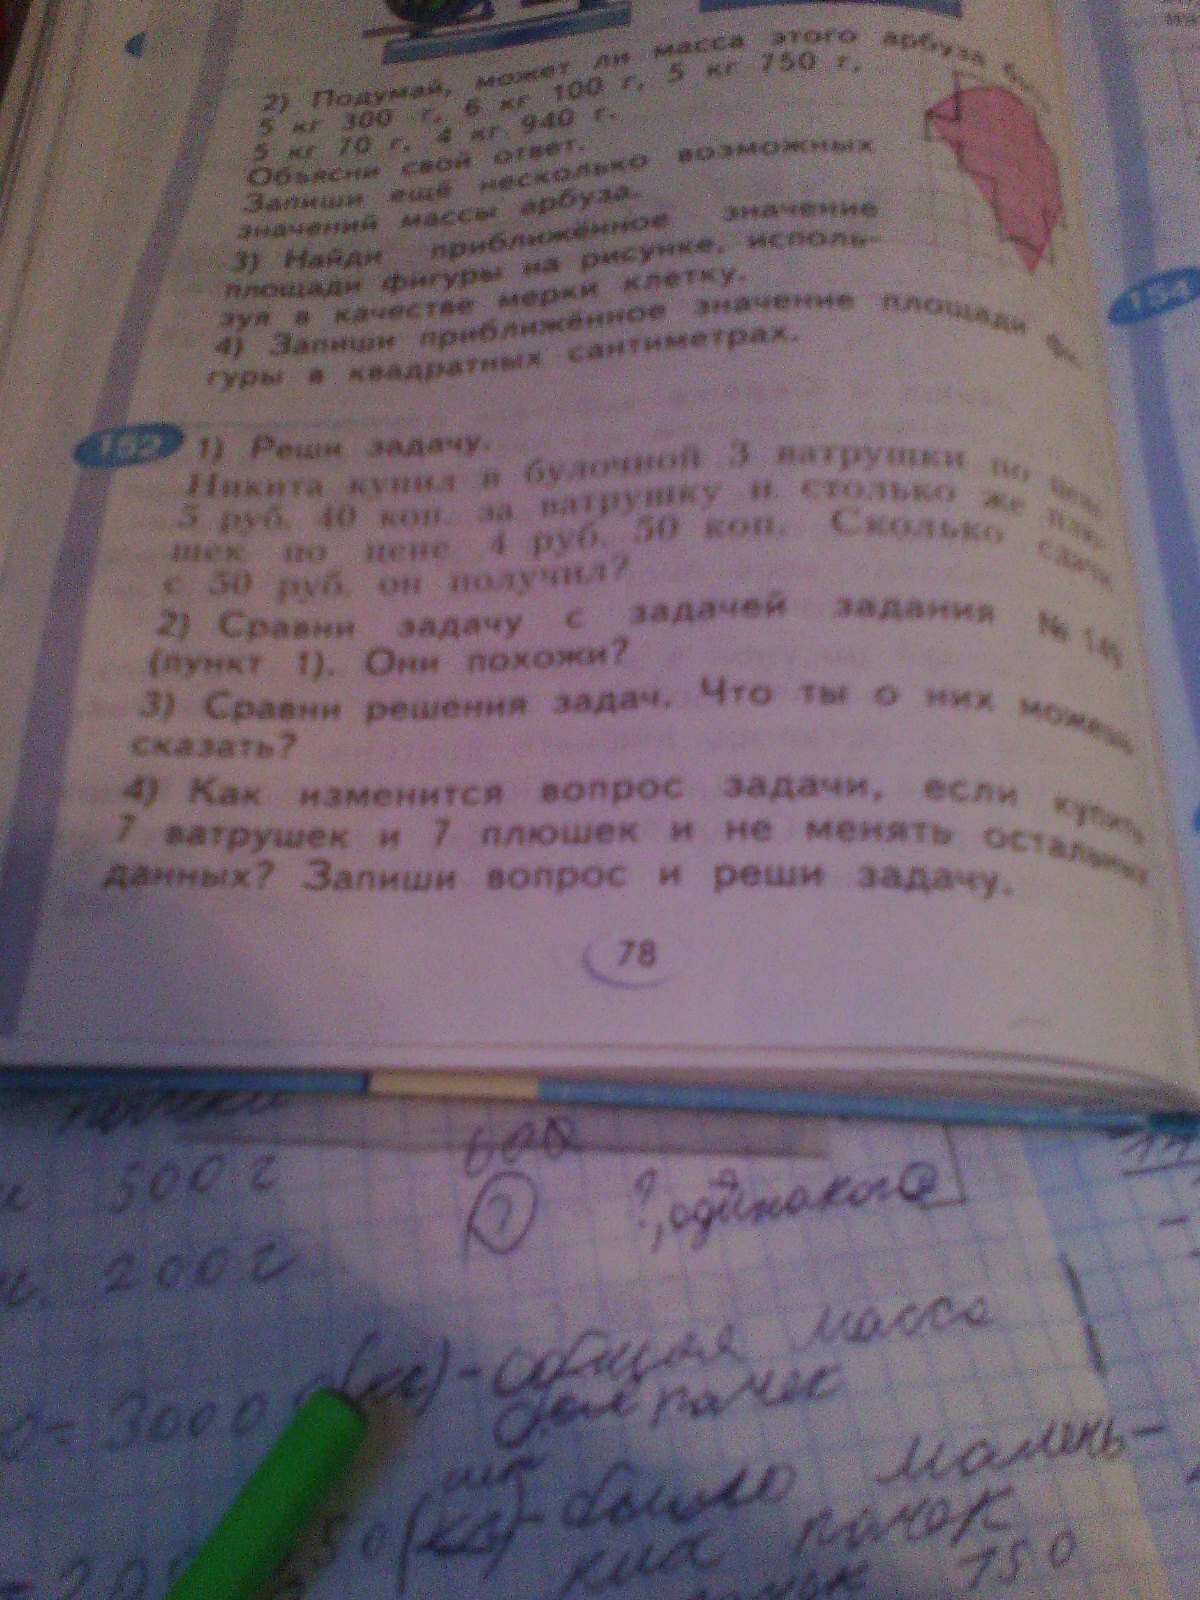 2) Подумай, может ли масса этого арбуза быть
5 кг 300 г, 6 кг 100 г, 5 кг 750 г,
5 кг 70 г, 4 кг 940 г.
Объясни свой ответ.
Запиши ещё несколько возможных
значений массы арбуза.
3) Найди приближённое значение
площади фигуры на рисунке, исполь-
зуя в качестве мерки клетку.
4) Запиши приближённое значение площади фи-
гуры в квадратных сантиметрах.
154
152 1) Реши задачу.
Никита купил в булочной 3 ватрушки по цене
5 руб. 40 коп. за ватрушку и столько же плю-
шек по цене 4 руб. 50 коп. Сколько сдачи
с 50 руб. он получил?
2) Сравни задачу с задачей задания №
(пункт 1). Они похожи?
3) Сравни решения задач. Что ты о них можешь
сказать?
4) Как изменится вопрос задачи, если купить
7 ватрушек и 7 плюшек и не менять остальных
данных? Запиши вопрос и реши задачу.
78
500 г ? ?, одинакого
200 г
= 3000 (кг) - общая масса
пачек
50 (шт) - было малень-
ких пачек
750